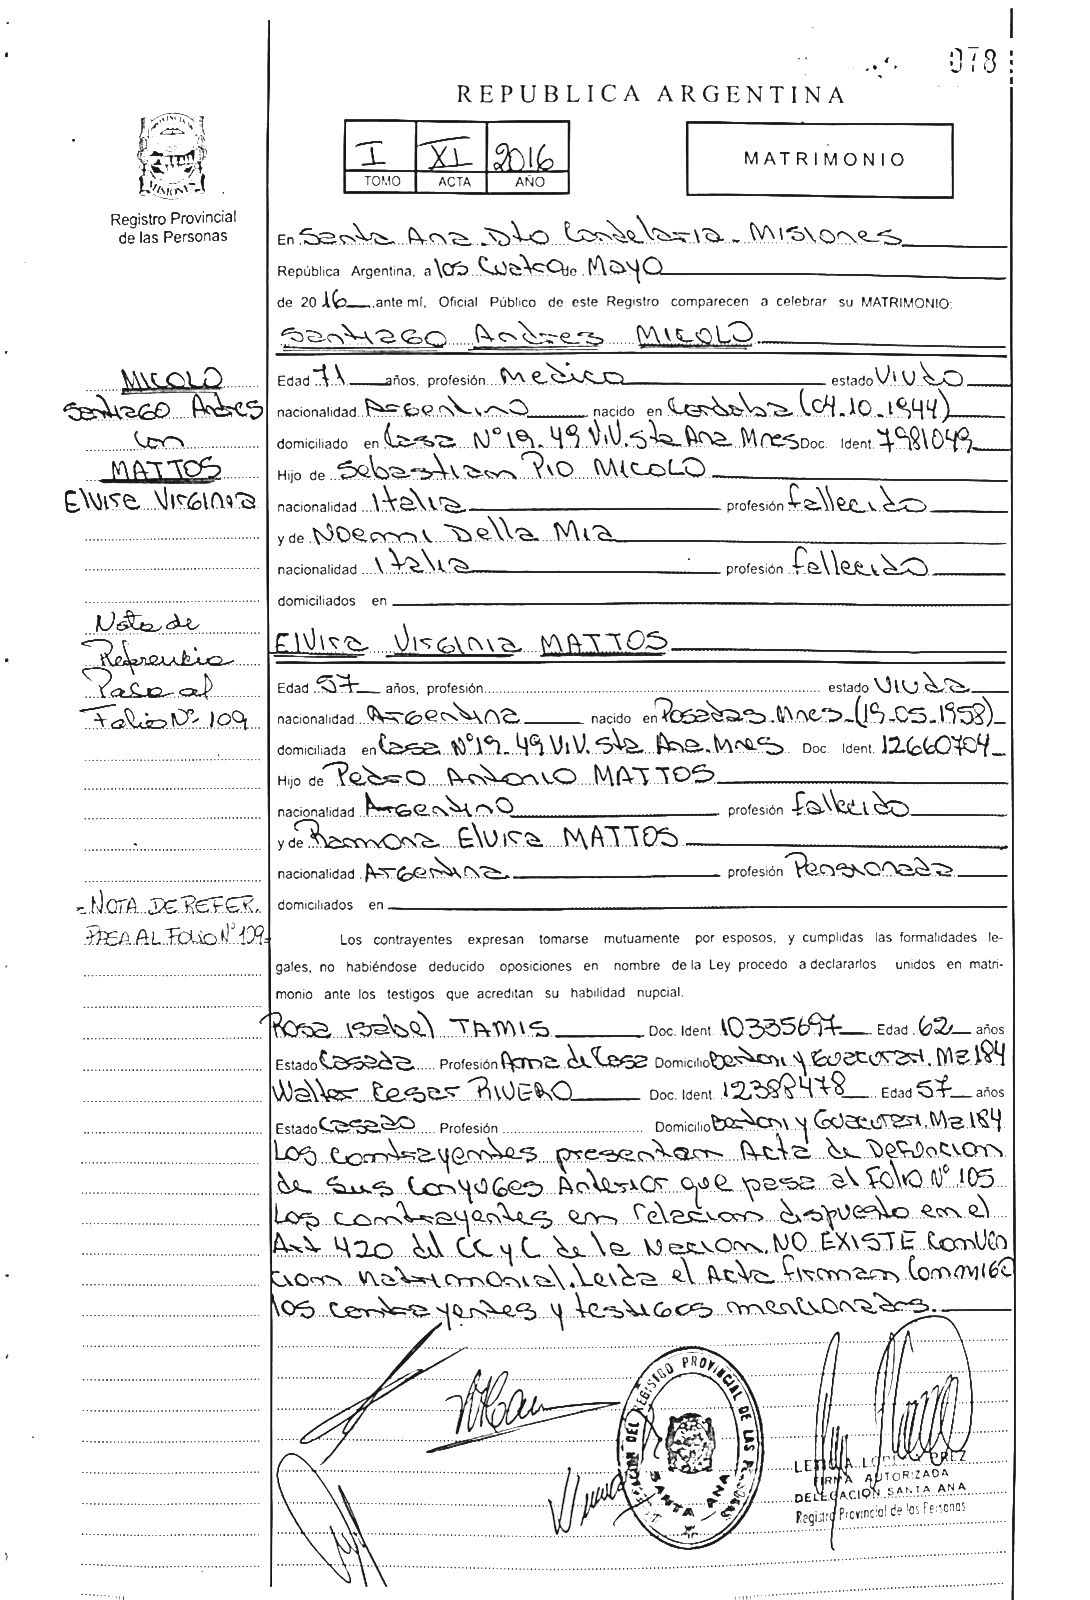 078
REPUBLICA ARGENTINA
I XI 2016
TOMO ACTA AÑO
MATRIMONIO
PROVINCIA
MISIONES
Registro Provincial
de las Personas
En Santa Ana. Dto Candelaria. Misiones
República Argentina, a los Cuatro de Mayo
de 2016, ante mí, Oficial Público de este Registro comparecen a celebrar su MATRIMONIO:
Santiago Andres MICOLO
MICOLO
Santiago Andres
con
MATTOS
Elvira Virginia
Edad 71 años, profesión Medico estado Viudo
nacionalidad Argentino nacido en Cordoba (04.10.1944)
domiciliado en Casa N°19. 49 Viv. Sta Ana Mnes Doc. Ident. 7981049
Hijo de Sebastiam Pio MICOLO
nacionalidad Italia profesión fallecido
y de Noemi Della Mia
nacionalidad Italia profesión fallecido
domiciliados en
Nota de
Referencia
Pasa al
Folio N° 109
Elvira Virginia MATTOS
Edad 57 años, profesión estado Viuda
nacionalidad Argentina nacido en Posadas. Mnes (19-05-1958)
domiciliada en Casa N°19. 49 Viv. Sta Ana. Mnes Doc. Ident. 12660704
Hijo de Pedro Antonio MATTOS
nacionalidad Argentino profesión fallecido
y de Ramona Elvira MATTOS
nacionalidad Argentina profesión Pensionada
domiciliados en
- NOTA DE REFER.
AL FOLIO N° 109-
Los contrayentes expresan tomarse mutuamente por esposos, y cumplidas las formalidades le-
gales, no habiéndose deducido oposiciones en nombre de la Ley procedo a declararlos unidos en matri-
monio ante los testigos que acreditan su habilidad nupcial.
Rosa Isabel TAMIS Doc. Ident 10335697 Edad 62 años
Estado Casada Profesión Ama de Casa Domicilio Bertoni y Guacurari. Mz 184
Walter Cesar RIVERO Doc. Ident. 12388478 Edad 57 años
Estado Casado Profesión Domicilio Bertoni y Guacurari. Mz 184
Los contrayentes presentan Acta de Defuncion
de sus Conyuges Anterior que pasa al Folio N° 105
Los contrayentes en relacion dispuesto en el
Art 420 del CC y C de la Nacion. NO EXISTE Conven
cion Matrimonial. Leida el Acta firmam Conmigo
los contrayentes y testigos mencionados.
DELEGACION DEL REGISTRO PROVINCIAL DE LAS PERSONAS
SANTA ANA
FIRMA AUTORIZADA
DELEGACION SANTA ANA
Registro Provincial de las Personas